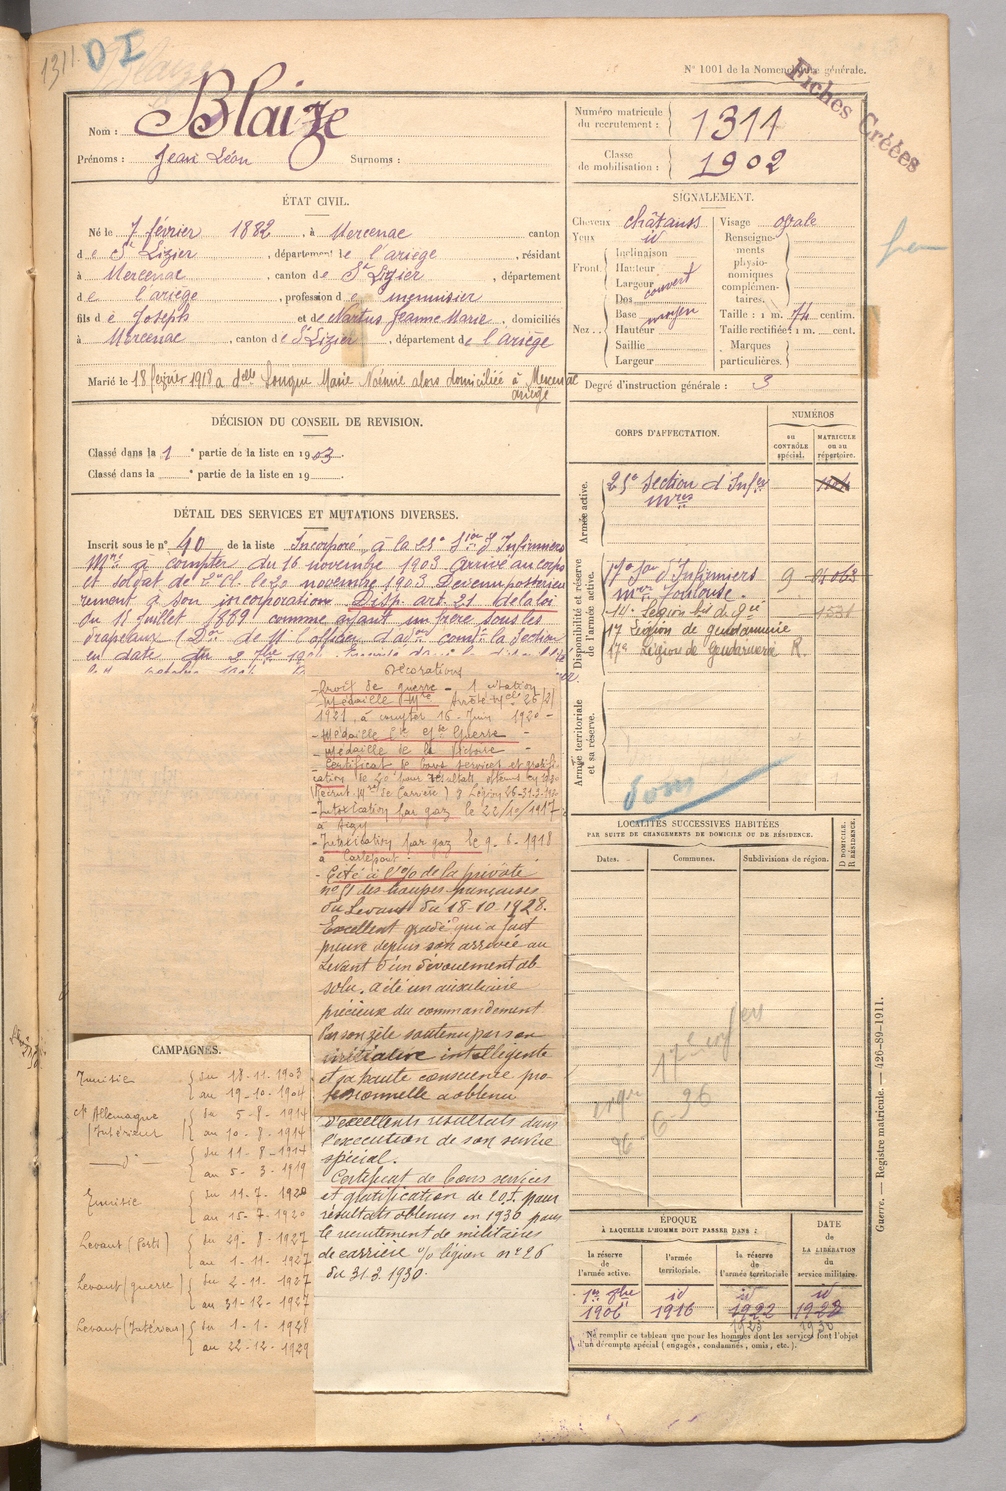 1311.
D I
N° 1001 de la Nomenclature générale.
Fiches Créées
Nom : Blaize
Prénoms : Jean Léon Surnoms :
Numéro matricule du recrutement : 1311
Classe de mobilisation : 1902
ÉTAT CIVIL.
Né le 7 février 1882 , à Mercenac canton
d e St Lizier , département de l'ariège , résidant
à Mercenac , canton de St Lizier , département
d e l'ariège , profession d e menuisier
fils d e Joseph et de Nartus Jeanne Marie , domiciliés
à Mercenac , canton de St Lizier , département de l'ariège
Marié le 18 février 1918 a delle Marie Noémie alors domiciliée à Mercenac
ariège
SIGNALEMENT.
Cheveux châtains
Yeux id
Front. Inclinaison
Hauteur
Largeur
Nez... Dos couvert
Base moyen
Hauteur
Saillie
Largeur
Visage ovale
Renseignements physionomiques complémentaires.
Taille : 1 m. 74 centim.
Taille rectifiée : 1 m. cent.
Marques particulières.
Degré d'instruction générale : 3
DÉCISION DU CONSEIL DE REVISION.
Classé dans la 1 e partie de la liste en 1903.
Classé dans la e partie de la liste en 19
DÉTAIL DES SERVICES ET MUTATIONS DIVERSES.
Inscrit sous le n° 40 de la liste Incorporé à la 25e d'Infirmiers
Mres à compter du 16 novembre 1903 arrivé au corps
et soldat de 2e Cl. le 20 novembre 1903 Devenu postérieu
rement à son incorporation Disp. art. 21 de la loi
du 15 juillet 1889 comme ayant un frère sous les
drapeaux
CORPS D'AFFECTATION.
NUMÉROS
au contrôle spécial.
matricule ou au répertoire.
Armée active.
25e Section d'Infers
mres
Disponibilité et réserve de l'armée active.
17e Son d'Infirmiers
mres Toulouse. 9
14e Légion bis de gie 1531
17 Légion de gendarmerie
17e Légion de Gendarmerie R.
Armée territoriale et sa réserve.
LOCALITÉS SUCCESSIVES HABITÉES
PAR SUITE DE CHANGEMENTS DE DOMICILE OU DE RÉSIDENCE.
Dates.
Communes.
Subdivisions de région.
D DOMICILE. R RÉSIDENCE.
Décorations
- Croix de guerre - 1 citation
- Médaille Mre Arrêté Mel 26/2/
1921, à compter 16 Juin 1920 -
- Médaille Cve Gde Guerre -
- Médaille de la Victoire -
- Certificat de bons services et gratifi
cation de 20 f pour résultats obtenus en 1930
(Recrut. Mre de Carrière) 26-31.3.1930
- Intoxication par gaz le 22/10/1917
à
- Intoxication par gaz le 9. 6. 1918
à Carlepont
- Cité à l'O/ de la prévôté
n° 51 des troupes françaises
du Levant du 18-10-1928.
Excellent gradé qui a fait
preuve depuis son arrivée au
Levant d'un dévouement ab-
solu. a été un auxiliaire
précieux du commandement
Par son zèle soutenu par son
initiative intelligente
et sa haute conscience pro-
fessionnelle a obtenu
d'excellents résultats dans
l'exécution de son service
spécial.
Certificat de bons services
et gratification de 20 f. pour
résultats obtenus en 1930 pour
le recrutement de militaires
de carrière o/ légion n° 26
du 31.3.1930.
CAMPAGNES.
Tunisie du 18-11-1903
au 19-10-1904
Ct Allemagne du 5-8-1914
Intérieur au 10-8-1914
- d° - du 11-8-1914
au 5-3-1919
Tunisie du 11-7-1920
au 15-7-1920
Levant (Ports) du 29-8-1927
au 1-11-1927
Levant (guerre) du 2-11-1927
au 31-12-1927
Levant (Intérieur) du 1-1-1928
au 22-12-1929
ÉPOQUE
À LAQUELLE L'HOMME DOIT PASSER DANS :
DATE DE LA LIBÉRATION du service militaire.
la réserve de l'armée active.
l'armée territoriale.
la réserve de l'armée territoriale
1er 9bre id id id
1906 1916 1922 1928
1923 1930
Ne remplir ce tableau que pour les hommes dont les services font l'objet
d'un décompte spécial (engagés, condamnés, omis, etc.).
Guerre. — Registre matricule. — 426-89-1911.